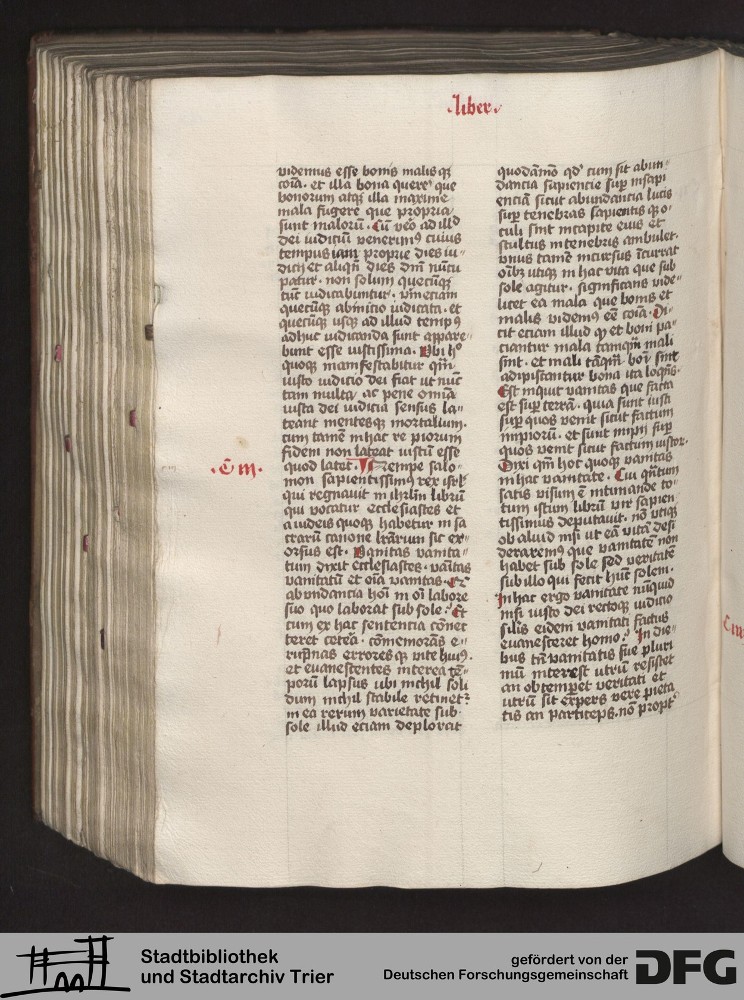 liber
videmus esse bonis malisq;
coīa. et illa bona querer̄ que
bonorum atq; illa maxime
mala fugere que propria
sunt malorū. Cū v̄o ad illd
dei iudiciū venerimꝯ cuius
tempus iam proprie dies iu-
dicij et aliqn̄ dies dn̄i nūcu
patur. non solum quecūq;
tūc iudicabuntur. vm̄eciam
quecūq; abinicio iudicata. et
quecūq; usq; ad illud tempꝯ
adhuc iudicanda sunt appare-
bunt esse iustissima. Vbi h͛
quoq; manifestabitur qm̄
iusto iudicio dei fiat ut nūc
tam multa ac pene om̄ia
iusta dei iudicia sensus la-
teant mentesq; mortalium.
cum tamē in hac re piorum
fidem non lateat iustū esse
quod latet. Nempe salo-
.C. III.
mon sapientissimꝯ rex isrl̄
qui regnauit in ihrlm̄ librū
qui vocatur ecclesiastes et
a iudeis quoq; habetur in sa
crarū canone l̄rārum sic ex-
orsus est. Vanitas vanita-
tum dixit ecclesiastes. vaītas
vanitatū et oīa vanitas. Et
abundancia hoī in oī labore
suo quo laborat sub sole? Et
cum ex hac sentencia cōnec
teret cetēa. cōmemorās e-
rūpnas erroresq; vite huiꝯ.
et euanescentes interea tē-
porū lapsus ubi nichil soli
dum nichil stabile retinet̄
in ea rerum varietate sub
sole illud eciam deplorat
quodāmō qd' cum sit abun-
dancia sapiencie sup̄ insapi
enciā sicut abundancia lucis
sup̄ tenebras sapientisq; o-
culi sint in capite eius et
stultus in tenebris ambulet.
vnus tamē incursus īcurrat
oībꝫ utiq; in hac vita que sub
sole agitur. significans vide-
licet ea mala que bonis et
malis videmꝯ eē coīa. Di-
cit eciam illud q̄ et boni pa-
ciantur mala tamqm̄ mali
sint. et mali tāqm̄ boī sint
adipiscantur bona ita loqns̄.
Est inquit vanitas que facta
est sup̄ terrā. quia sunt iusti
sup̄ quos venit sicut factum
impiorū. et sunt impij sup̄
quos venit sicut factum iustor̄.
Dixi qm̄ hoc quoq; vanitas
in hac vanitate. Cui qn̄tum
satis visum ē intimande to-
tum istum librū vir sapien-
tissimus deputauit. nō utiq;
ob aliud nisi ut eā vitā desi
deraremꝯ que vanitatē non
habet sub sole sed veritatē
sub illo qui fecit hūc solem.
In hac ergo vanitate nūquid
nisi iusto dei rectoq; iudicio
sil̄is eidem vanitati factus
euanesceret homo? In die-
bus tn̄ vanitatis sue pluri
mū interest utrū resistet
an obtemp̄et veritati et
utrū sit exp̄ers vere pieta
tis an particeps. nō propt̄
Stadtbibliothek
und Stadtarchiv Trier
gefördert von der
Deutschen Forschungsgemeinschaft
DFG